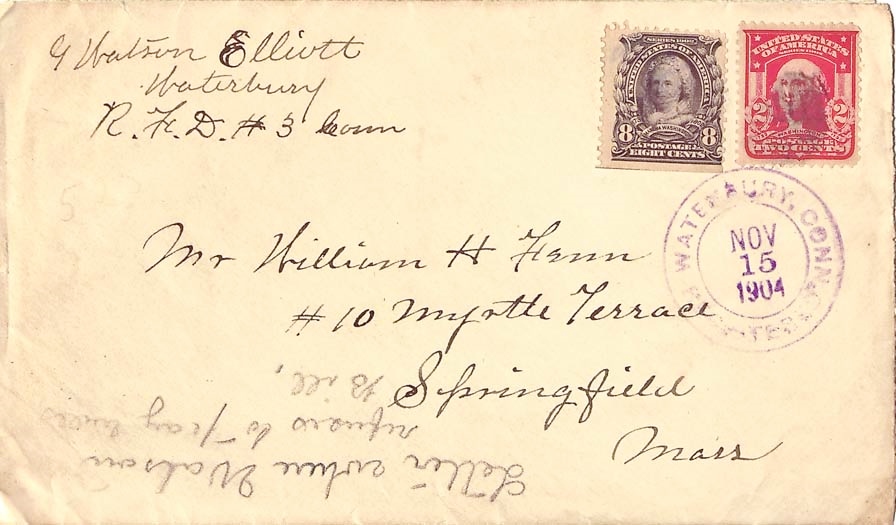 G Watson Elliott
Waterbury
R. F. D. # 3 Conn
SERIES 1902
UNITED STATES OF AMERICA
MARTHA WASHINGTON
8 8
POSTAGE
EIGHT CENTS
UNITED STATES
OF AMERICA
SERIES 1902
2 2
WASHINGTON
POSTAGE
TWO CENTS
WATERBURY, CONN.
NOV
15
1904
REGISTERED
Mr William H Fenn
# 10 Myrtle Terrace
Springfield
Mass
Letter where Watson
refuses to pay
Bill,